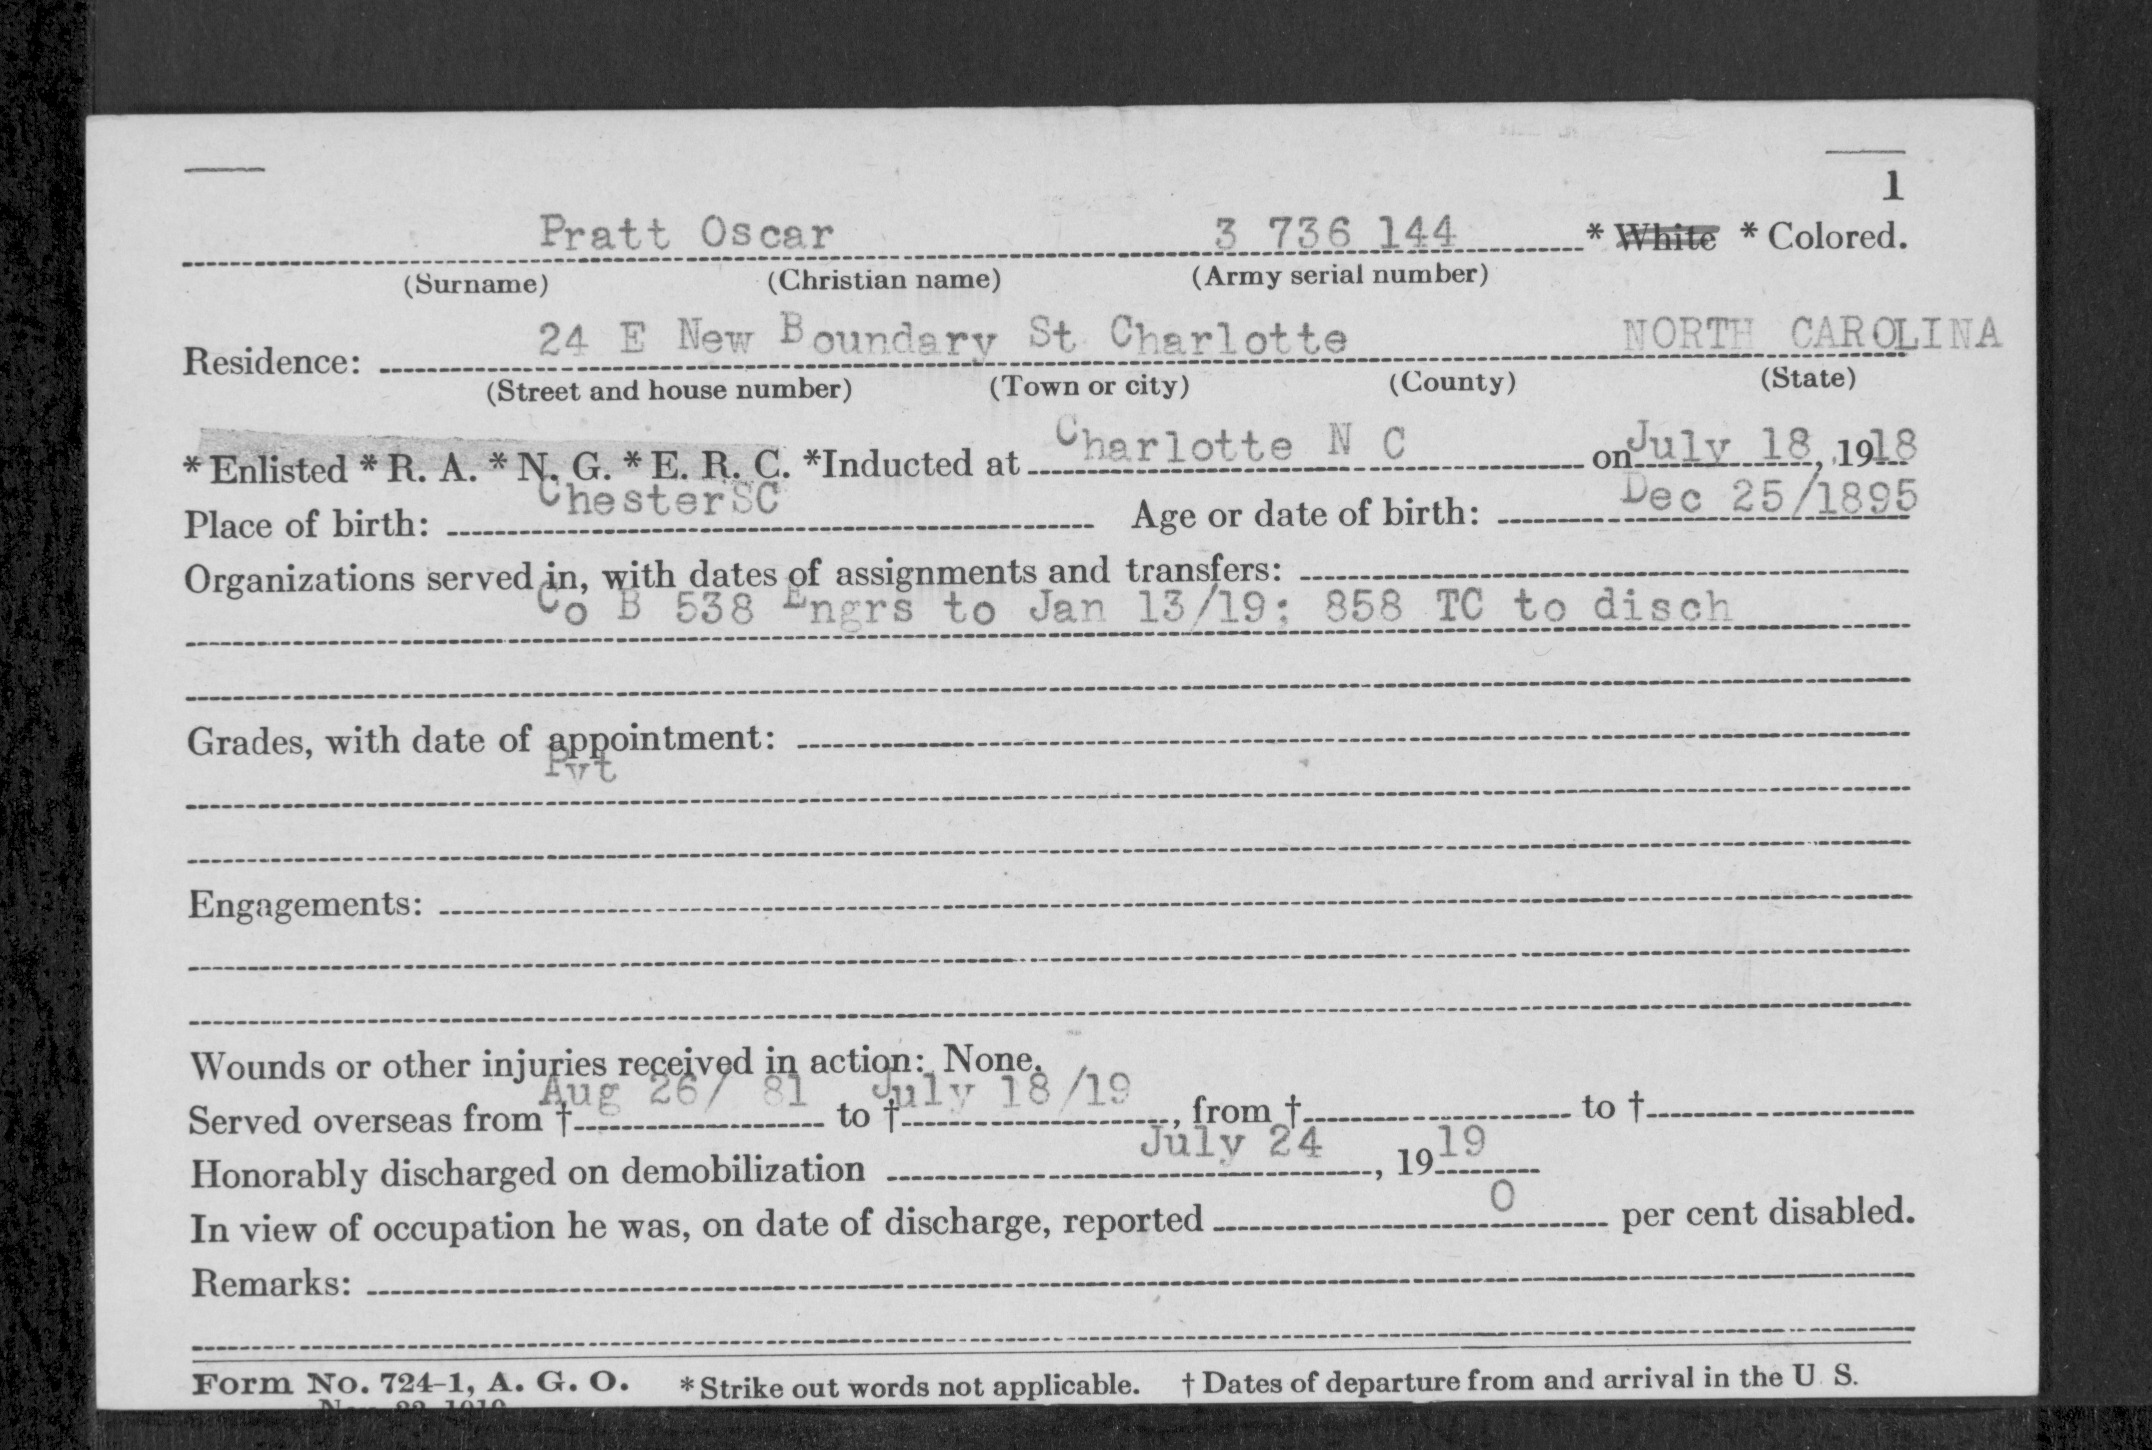 1
Pratt Oscar 3 736 144 * White * Colored.
(Surname) (Christian name) (Army serial number)
Residence: 24 E New Boundary St Charlotte NORTH CAROLINA
(Street and house number) (Town or city) (County) (State)
* Enlisted * R. A. * N. G. * E. R. C. *Inducted at Charlotte N C on July 18, 1918
Place of birth: ChesterSC Age or date of birth: Dec 25/1895
Organizations served in, with dates of assignments and transfers:
Co B 538 Engrs to Jan 13/19; 858 TC to disch
Grades, with date of appointment:
Pvt
Engagements:
Wounds or other injuries received in action: None.
Served overseas from † Aug 26/ 81 to † July 18/19, from † to †
Honorably discharged on demobilization July 24, 1919
In view of occupation he was, on date of discharge, reported 0 per cent disabled.
Remarks:
Form No. 724-1, A. G. O. * Strike out words not applicable. † Dates of departure from and arrival in the U. S.